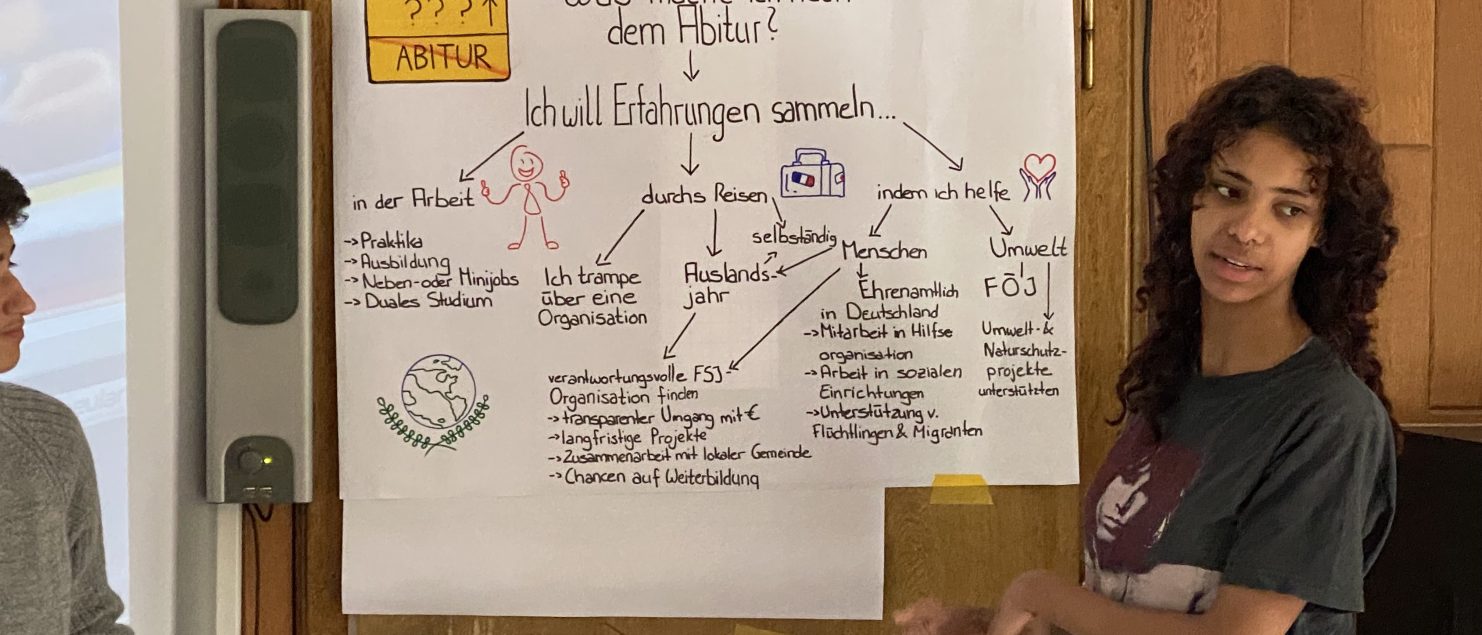 ? ? ?
ABITUR
dem Abitur?
Ich will Erfahrungen sammeln...
in der Arbeit
-> Praktika
-> Ausbildung
-> Neben- oder Minijobs
-> Duales Studium
durchs Reisen
selbständig
Ich trampe
über eine
Organisation
Auslands-
jahr
verantwortungsvolle FSJ
Organisation finden
-> transparenter Umgang mit €
-> langfristige Projekte
-> Zusammenarbeit mit lokaler Gemeinde
-> Chancen auf Weiterbildung
indem ich helfe
Menschen
Ehrenamtlich
in Deutschland
-> Mitarbeit in Hilfse
organisation
-> Arbeit in sozialen
Einrichtungen
-> Unterstützung v.
Flüchtlingen & Migranten
Umwelt
FÖJ
Umwelt- &
Naturschutz-
projekte
unterstützten